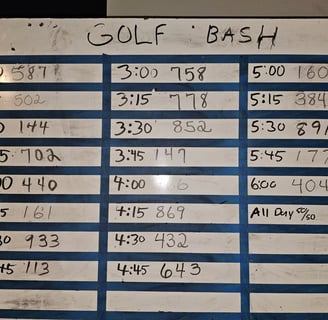 GOLF BASH
587 3:00 758 5:00 160
502 3:15 778 5:15 384
144 3:30 852 5:30
702 3:45 147 5:45
440 4:00 6:00 404
161 4:15 869 All Day 50/50
933 4:30 432
113 4:45 643